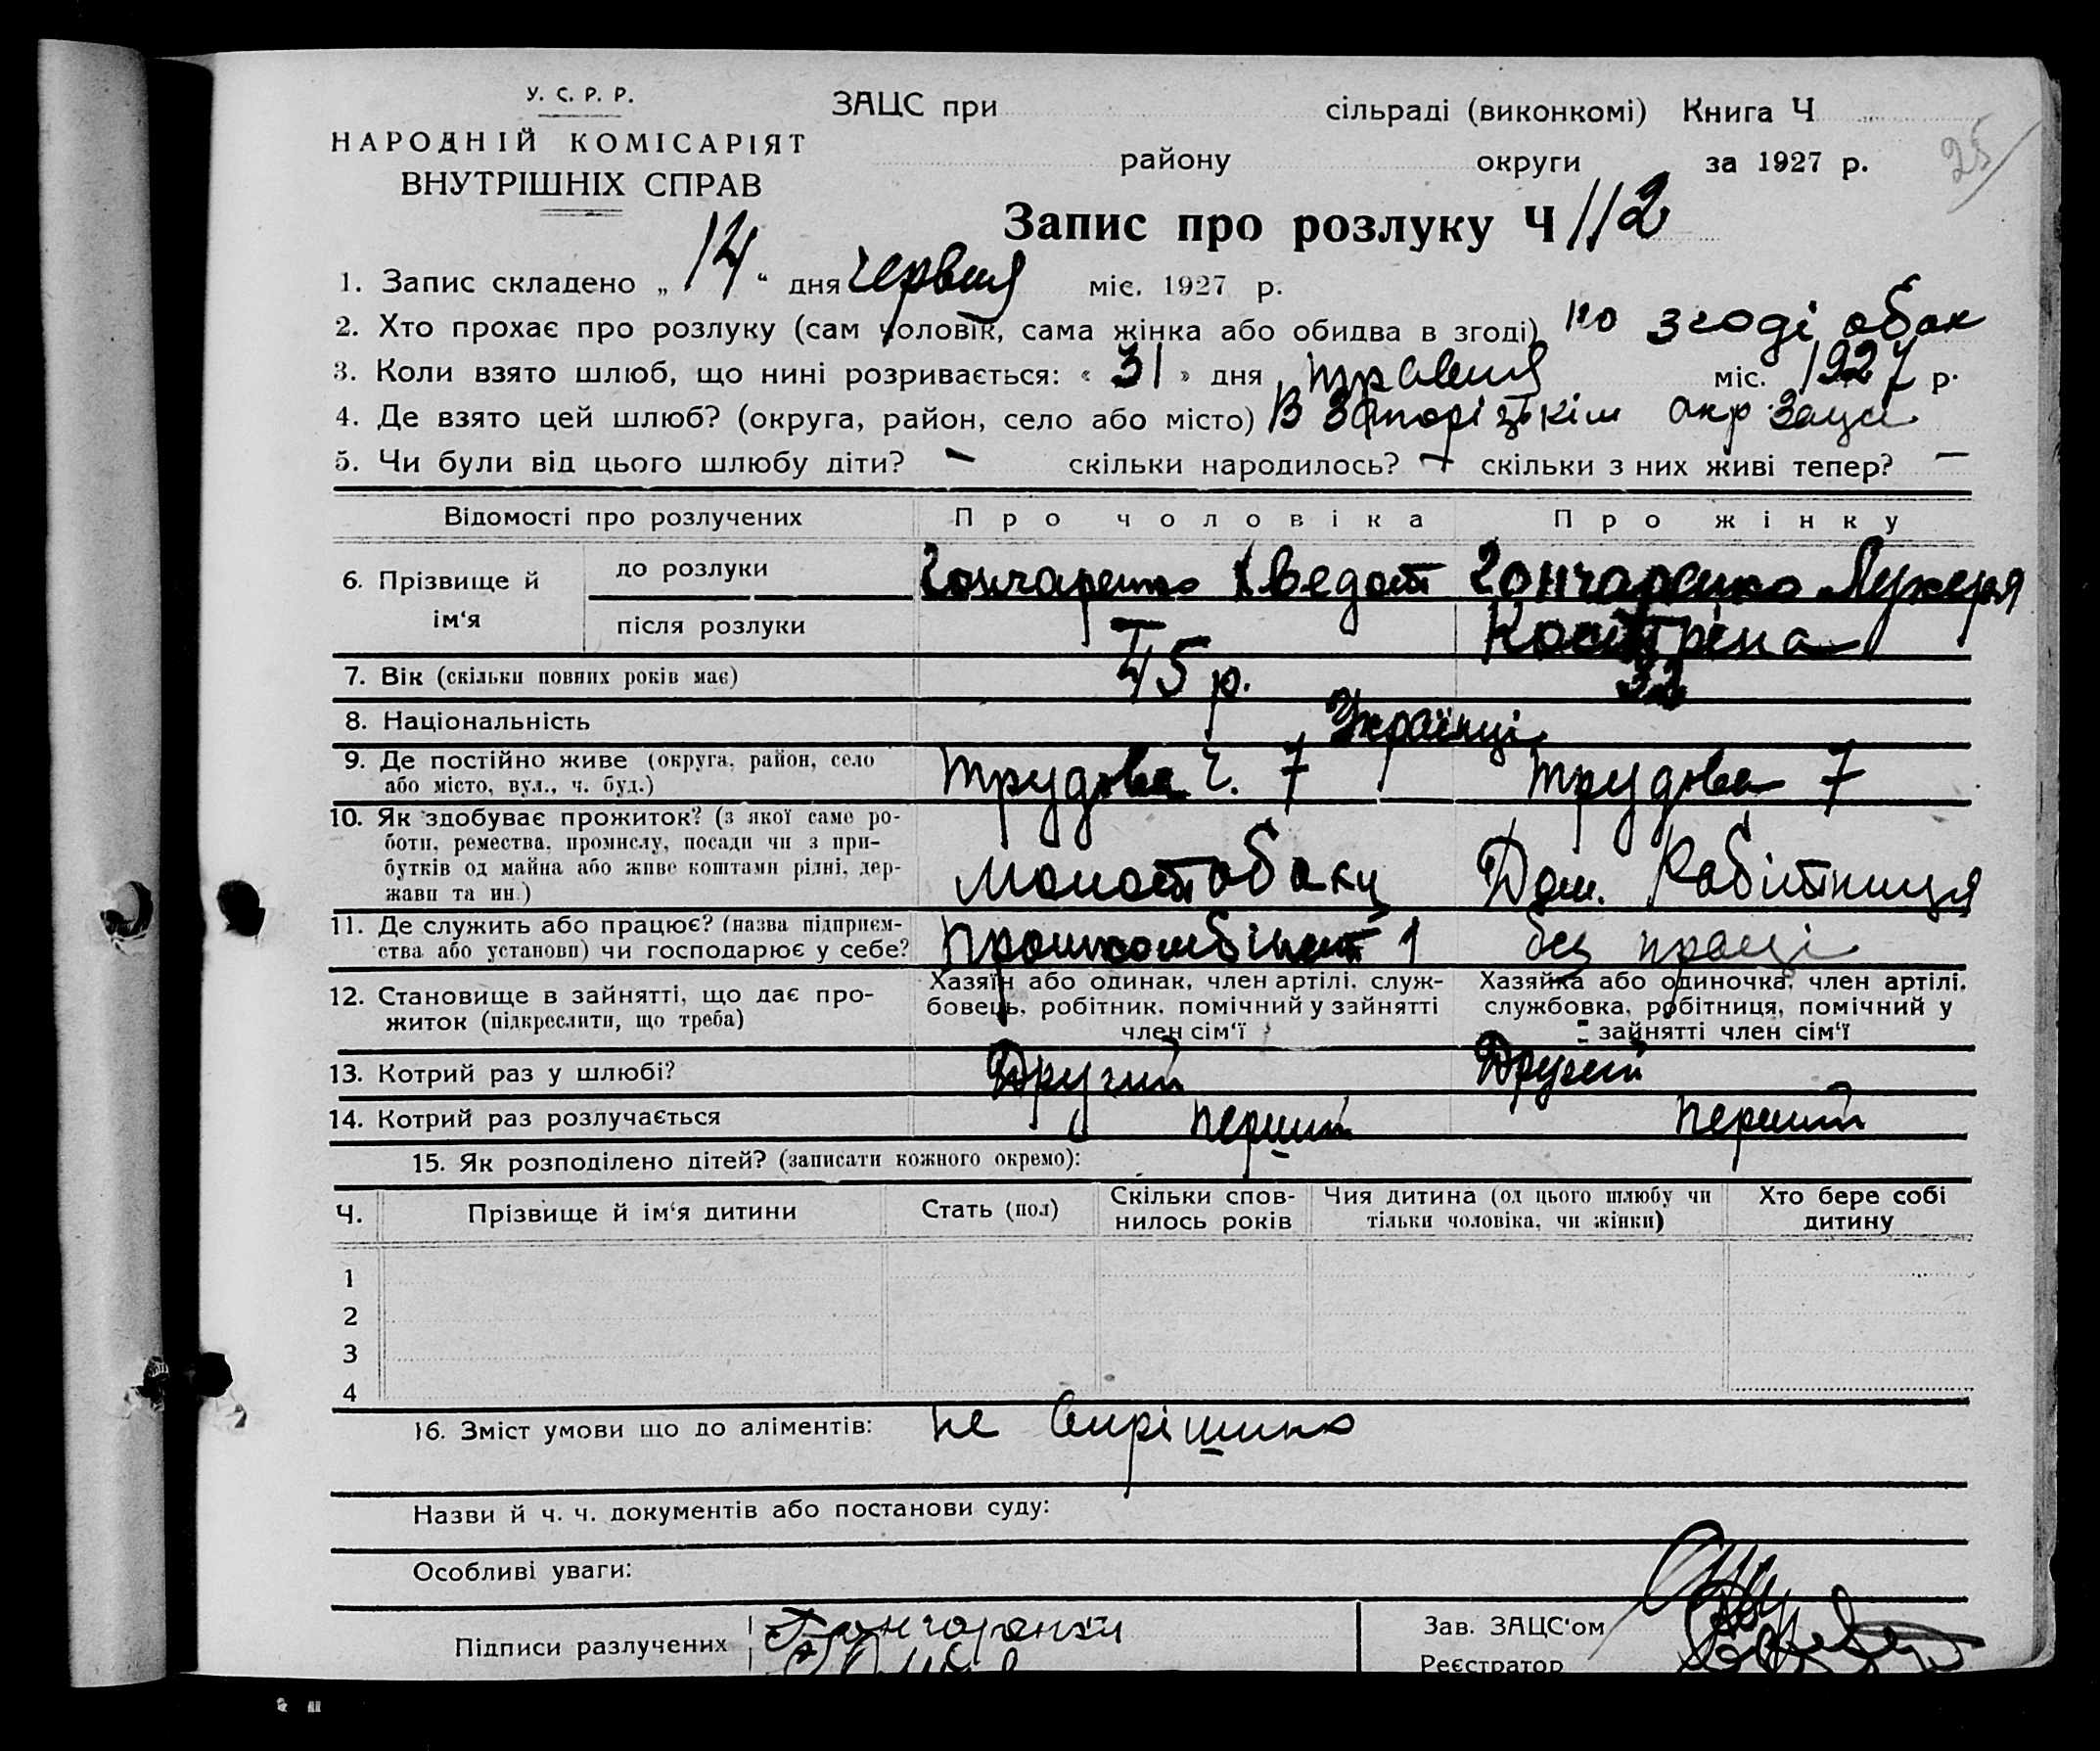 У. С. Р. Р.
НАРОДНІЙ КОМІСАРІЯТ
ВНУТРІШНІХ СПРАВ
ЗАЦС при сільраді (виконкомі) Книга Ч
району округи за 1927 р.
25
Запис про розлуку Ч 112
1. Запис складено „ 14 “ дня червня міс. 1927 р.
2. Хто прохає про розлуку (сам чоловік, сама жінка або обидва в згоді) по згоді обох
3. Коли взято шлюб, що нині розривається: « 31 » дня травня міс. 1927 р.
4. Де взято цей шлюб? (округа, район, село або місто) В Запорізькім окр. Зацсі
5. Чи були від цього шлюбу діти? — скільки народилось? — скільки з них живі тепер? —
Відомості про розлучених Про чоловіка Про жінку
6. Прізвище й ім‘я
до розлуки Гончаренко Гончаренко Лукеря
після розлуки
7. Вік (скільки повних років має) 45 р. 32
8. Національність Українці
9. Де постійно живе (округа, район, село або місто, вул., ч. буд.) Трудова ч. 7 Трудова 7
10. Як здобуває прожиток? (з якої саме роботи, ремества, промислу, посади чи з прибутків од майна або живе коштами рідні, держави та ин.) Дом. Робітниця
11. Де служить або працює? (назва підприємства або установи) чи господарює у себе? 1 без праці
12. Становище в зайнятті, що дає прожиток (підкреслити, що треба)
Хазяїн або одинак, член артілі, службовець, робітник, помічний у зайнятті член сім‘ї
Хазяйка або одиночка, член артілі, службовка, робітниця, помічний у зайнятті член сім‘ї
13. Котрий раз у шлюбі? Другий Другий
14. Котрий раз розлучається перший перший
15. Як розподілено дітей? (записати кожного окремо):
Ч. Прізвище й ім‘я дитини Стать (пол) Скільки сповнилось років Чия дитина (од цього шлюбу чи тільки чоловіка, чи жінки) Хто бере собі дитину
1
2
3
4
16. Зміст умови що до аліментів: не вирішино
Назви й ч. ч. документів або постанови суду:
Особливі уваги:
Підписи разлучених Зав. ЗАЦС‘ом
Реєстратор